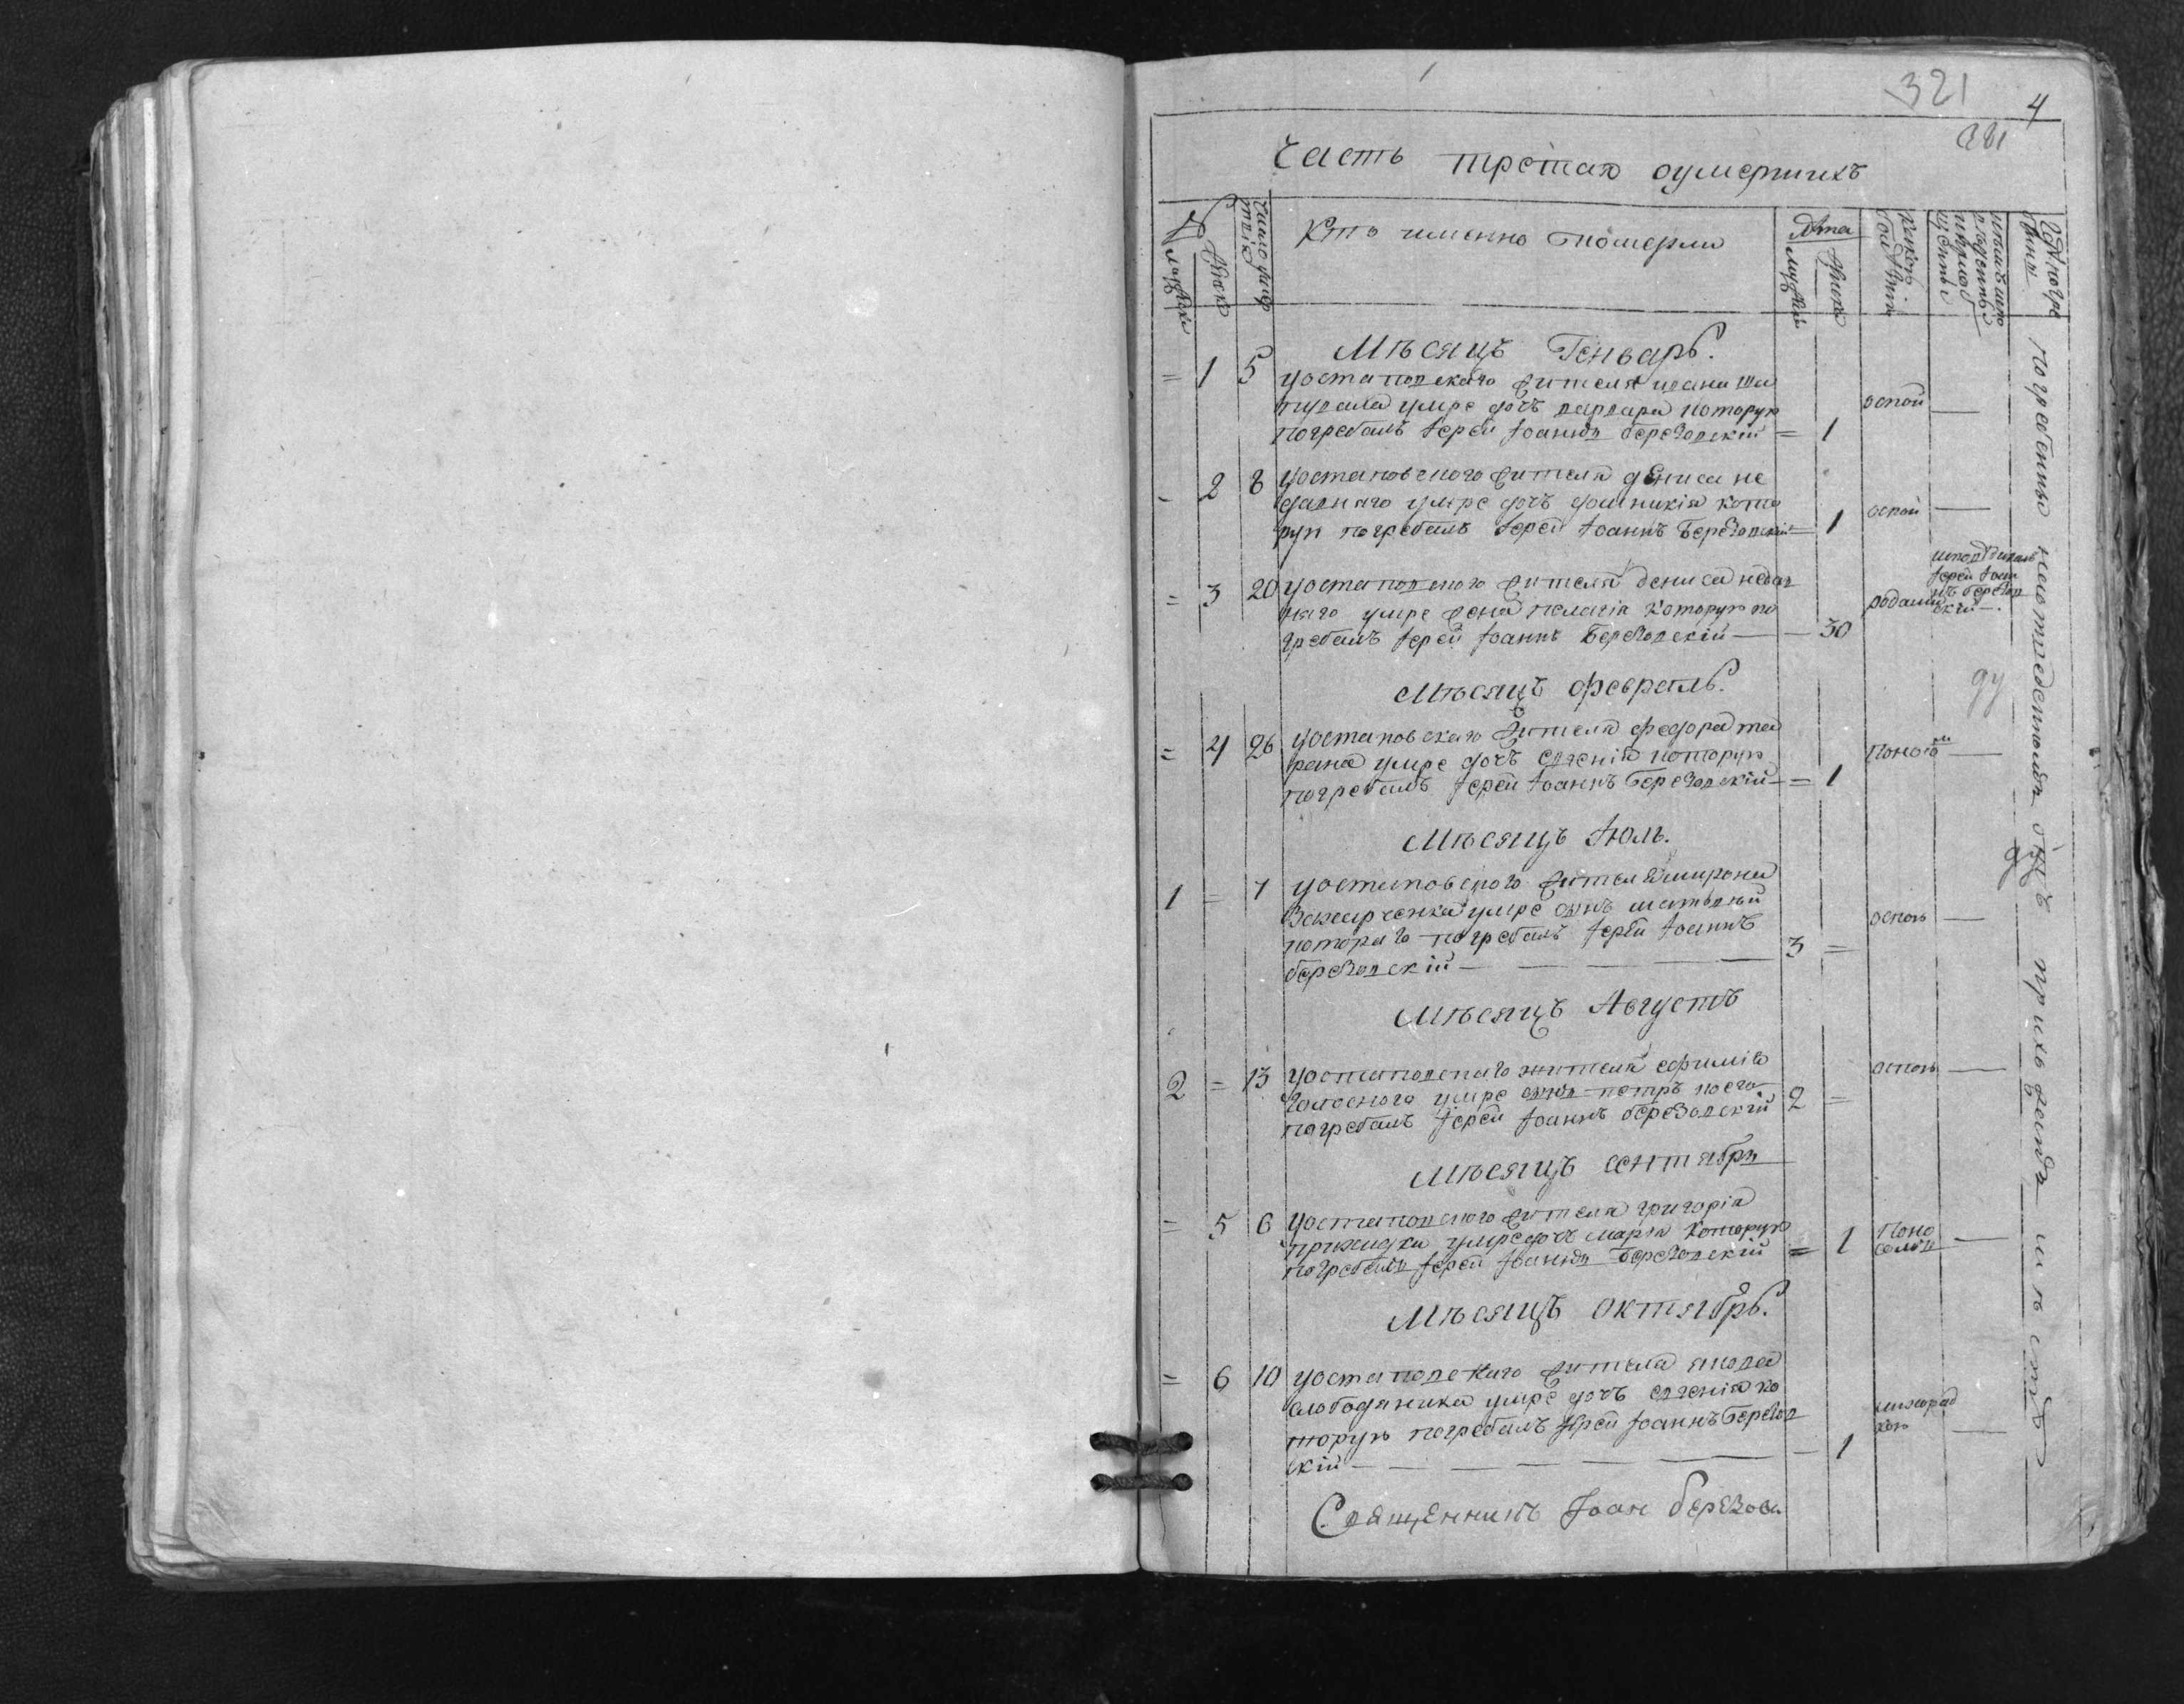 321
4
281
Часть третая оумершихъ
№
мужеска
женска
Число
Кто именно померли
Лѣта
мужеска
женска
Какою болѣзнию
Гдѣ погребены
Мѣсяцъ Генварь.
= 1 5 устаповскаго жителя ивана
умре дочъ варвара которую
погребалъ Іерей Іоаннъ березовскій = 1 оспой —
- 2 8 устаповского жителя дениса не
давнаго умре дочъ домникія кото
рую погребалъ Іерей Іоаннъ Березовскій — 1 оспой —
= 3 20 устаповского жителя дениса недав
наго умре жена пелагіа которую по
гребалъ Іерей Іоаннъ Березовскій — — 30 родами
исповѣдивалъ
Іерей Іоан
нъ березов
скій —.
Мѣсяцъ февраль.
= 4 26 устаповскаго жителя федора та
рана умре дочъ евгенія которую
погребалъ Іерей Іоаннъ Березовскій — = 1 —
Мѣсяцъ Іюль.
1 = 7 устаповского жителя мирона
Захарченка умре сынъ матвѣй
котораго погребалъ Іерей Іоаннъ
березовскій — — — — 3 = оспою —
Мѣсяцъ Августъ
2 = 13 устаповскаго жителя ефиміа
умре сынъ петръ коего
погребалъ Іерей Іоаннъ березовскій 2 = оспою —
Мѣсяцъ сентябрь
= 5 6 устаповского жителя григоріа
умре дочъ марія Которую
погребалъ Іерей Іоаннъ Березовскій = 1 поно
сомъ —
Мѣсяцъ октябрь.
= 6 10 устаповскаго жителя якова
слободяника умре дочъ евгенія ко
торую погребалъ Іерей Іоаннъ Березов
скій — — — — — 1 лихорад
кою —
Священникъ Іоан березовск
погребены на отведенномъ при мѣстѣ